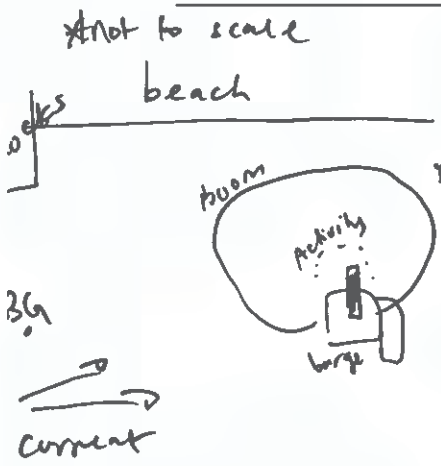 *not to scale
beach
boom
Activity
BG
barge
current